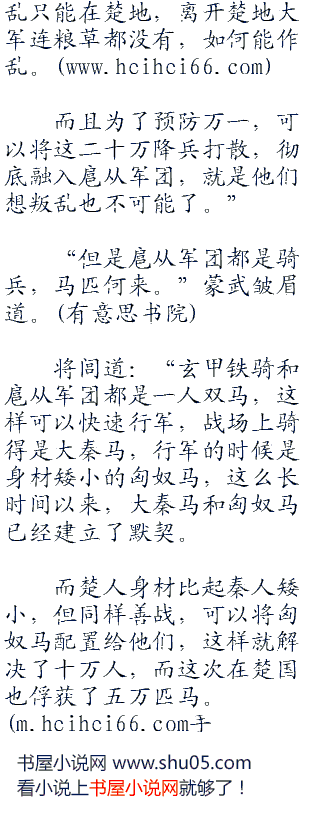 乱只能在楚地，离开楚地大
军连粮草都没有，如何能作
乱。(www.hcihci66.com)
而且为了预防万一，可
以将这二十万降兵打散，彻
底融入扈从军团，就是他们
想叛乱也不可能了。”
“但是扈从军团都是骑
兵，马匹何来。”蒙武皱眉
道。(有意思书院)
将闾道：“玄甲铁骑和
扈从军团都是一人双马，这
样可以快速行军，战场上骑
得是大秦马，行军的时候是
身材矮小的匈奴马，这么长
时间以来，大秦马和匈奴马
已经建立了默契。
而楚人身材比起秦人矮
小，但同样善战，可以将匈
奴马配置给他们，这样就解
决了十万人，而这次在楚国
也俘获了五万匹马。
(m.hcihci66.com手
书屋小说网 www.shu05.com
看小说上书屋小说网就够了！